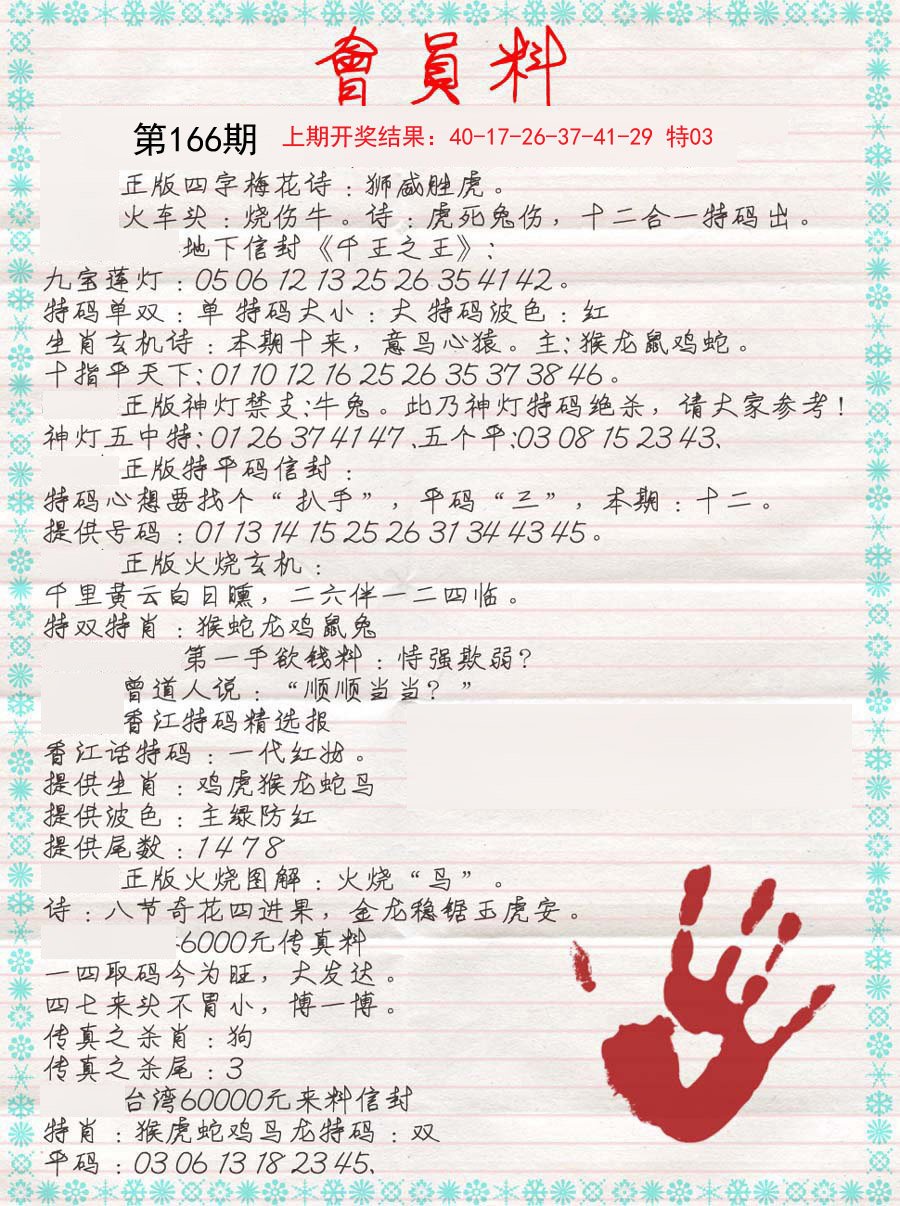 會員料
第166期 上期开奖结果：40-17-26-37-41-29 特03
正版四字梅花诗：狮威胜虎。
火车头：烧伤牛。诗：虎死兔伤，十二合一特码出。
地下信封《千王之王》：
九宝莲灯：05 06 12 13 25 26 35 41 42。
特码单双：单 特码大小：大 特码波色：红
生肖玄机诗：本期十来，意马心猿。主：猴龙鼠鸡蛇。
十指平天下：01 10 12 16 25 26 35 37 38 46。
正版神灯禁支：牛兔。此乃神灯特码绝杀，请大家参考！
神灯五中特：01 26 37 41 47、五个平：03 08 15 23 43、
正版特平码信封：
特码心想要找个“扒手”，平码“三”，本期：十二。
提供号码：01 13 14 15 25 26 31 34 43 45。
正版火烧玄机：
千里黄云白日曛，二六伴一二四临。
特双特肖：猴蛇龙鸡鼠兔
第一手欲钱料：恃强欺弱？
曾道人说：“顺顺当当？”
香江特码精选报
香江话特码：一代红妆。
提供生肖：鸡虎猴龙蛇马
提供波色：主绿防红
提供尾数：1 4 7 8
正版火烧图解：火烧“鸟”。
诗：八节奇花四进果，金龙稳锯玉虎安。
6000元传真料
一四取码今为旺，大发达。
四七来头不冒小，博一博。
传真之杀肖：狗
传真之杀尾：3
台湾60000元来料信封
特肖：猴虎蛇鸡马龙特码：双
平码：03 06 13 18 23 45、